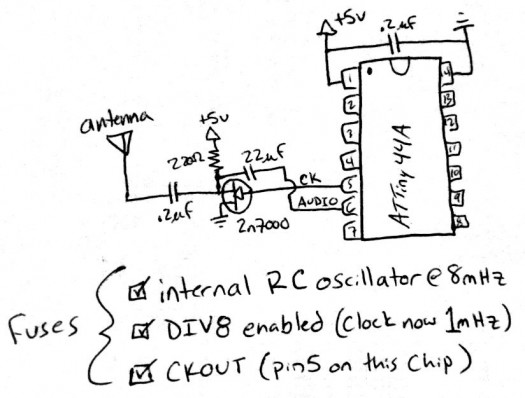 +5v
.2uf
antenna
+5v
220Ω
22uf
.2uf
2n7000
CK
AUDIO
ATTiny 44A
1
2
3
4
5
6
7
14
13
12
11
10
9
8
Fuses
internal RC oscillator @ 8mHz
DIV8 enabled (Clock now 1mHz)
CKOUT (pin5 on this chip)